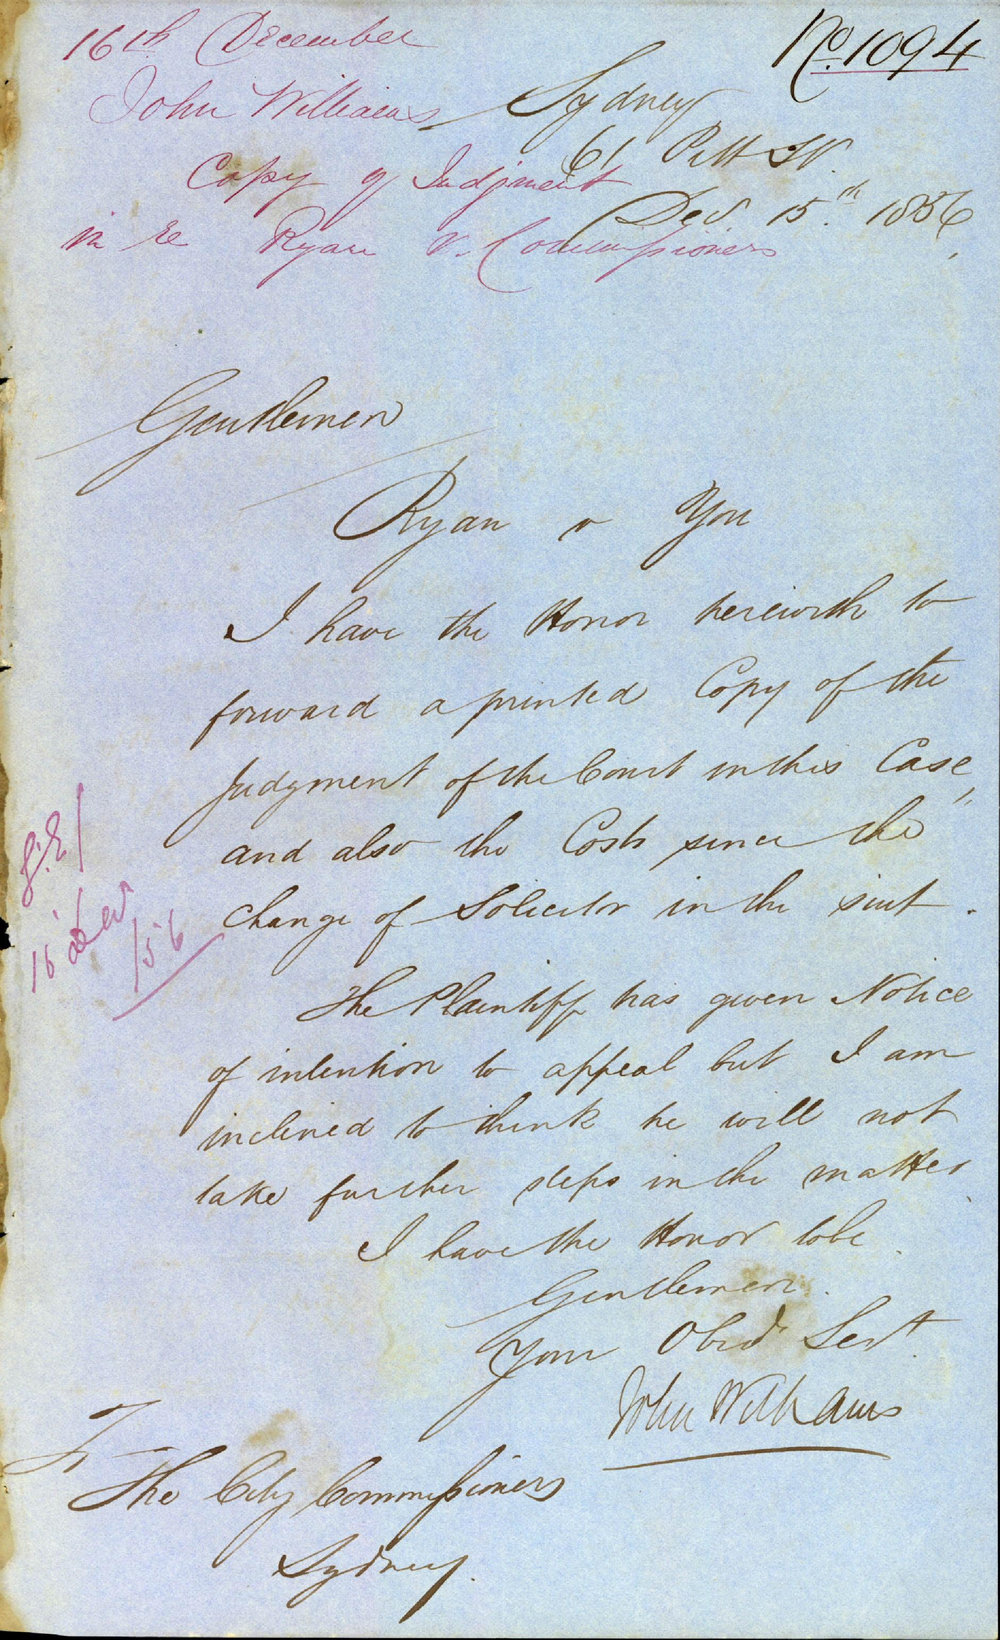 No. 1094
16th December
John Williams
Copy of Judgment
in re Ryan v. Commissioners
Sydney
61 Pitt St
Decr 15th 1856
Gentlemen
Ryan v You
I have the Honor herewith to
forward a printed Copy of the
Judgment of the Court in this Case,
and also the Costs since the
change of Solicitor in the suit.
The Plaintiff has given Notice
of intention to appeal but I am
inclined to think he will not
take further steps in the matter.
I have the Honor to be.
Gentlemen.
Your Obedt Servt
John Williams
16 Decr
/56
To
The City Commissioners
Sydney.